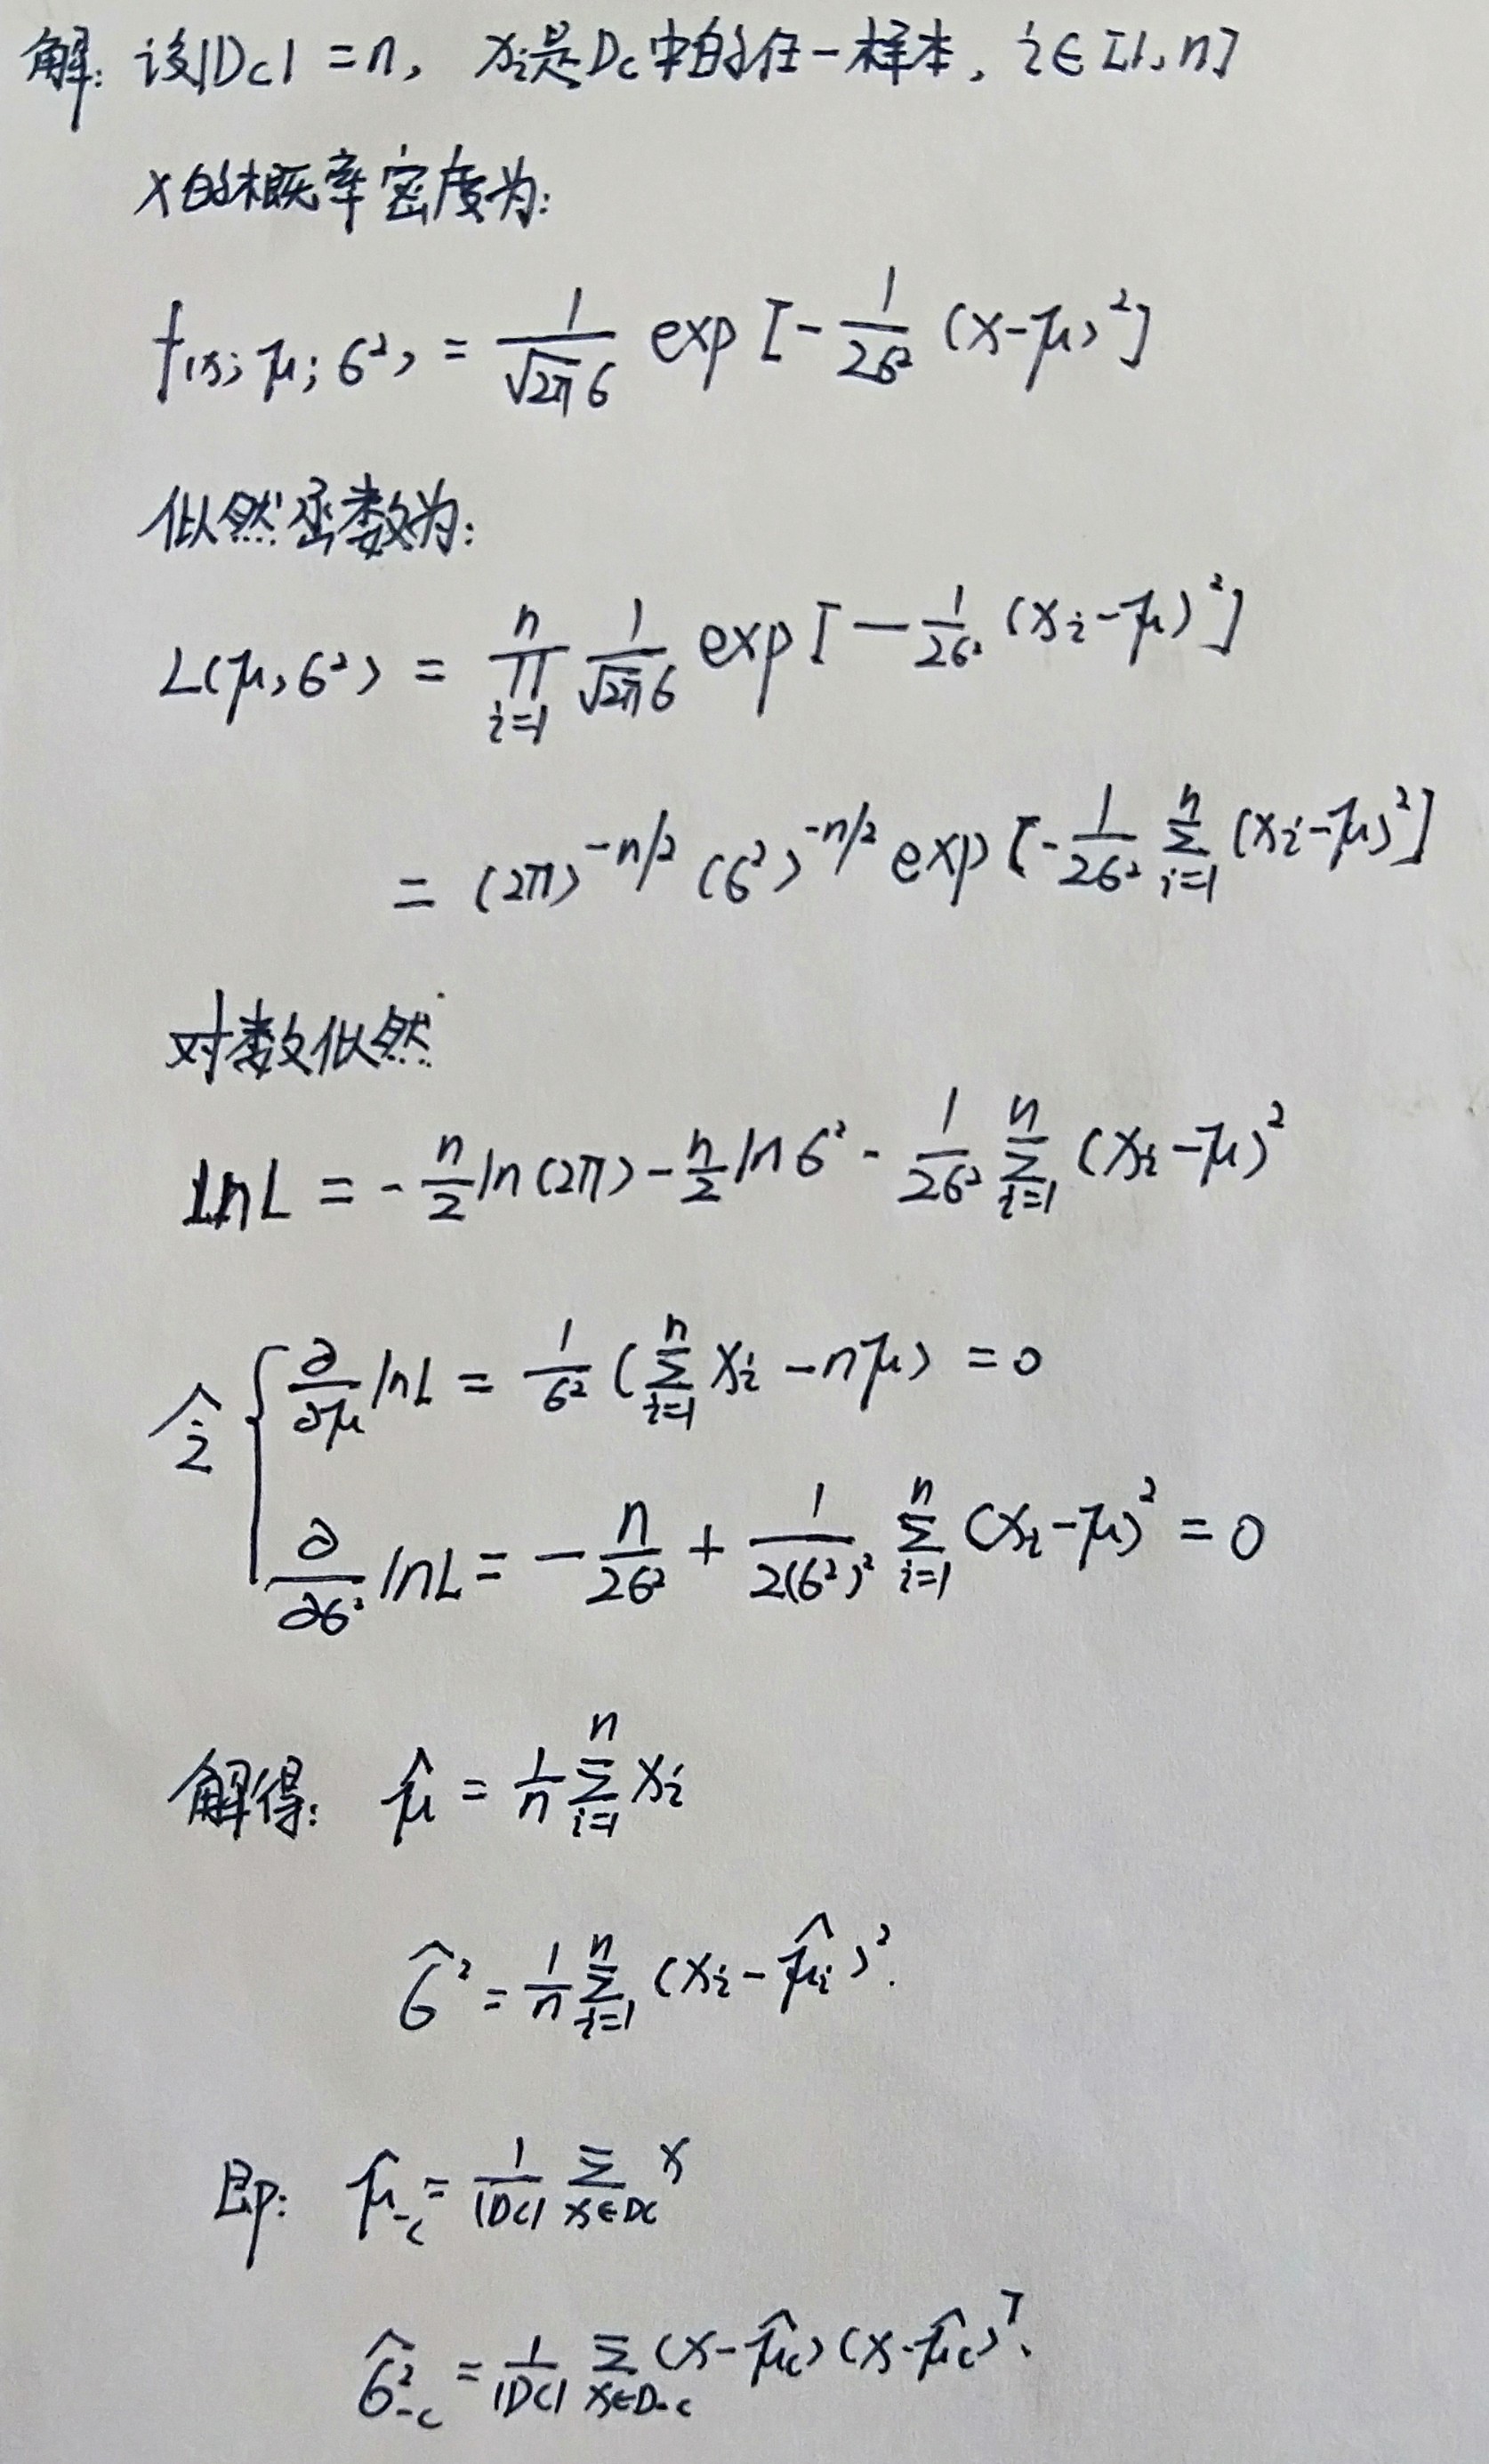 解: 设|Dc| = n, xi是Dc中的任一样本, i∈[1,n]
x的概率密度为:
f(x; μ; σ²) = 1/(√2π σ) exp[-1/(2σ²) (x-μ)²]
似然函数为:
L(μ, σ²) = ∏_{i=1}^{n} 1/(√2π σ) exp[-1/(2σ²) (xi-μ)²]
= (2π)^{-n/2} (σ²)^{-n/2} exp[-1/(2σ²) Σ_{i=1}^{n} (xi-μ)²]
对数似然
lnL = -n/2 ln(2π) - n/2 lnσ² - 1/(2σ²) Σ_{i=1}^{n} (xi-μ)²
令 { ∂/∂μ lnL = 1/σ² (Σ_{i=1}^{n} xi - nμ) = 0
∂/∂σ² lnL = -n/(2σ²) + 1/(2(σ²)²) Σ_{i=1}^{n} (xi-μ)² = 0
解得: μ̂ = 1/n Σ_{i=1}^{n} xi
σ̂² = 1/n Σ_{i=1}^{n} (xi-μ̂i)².
即: μ̂_c = 1/|Dc| Σ_{x∈Dc} x
σ̂²_c = 1/|Dc| Σ_{x∈Dc} (x-μ̂c)(x-μ̂c)^T.